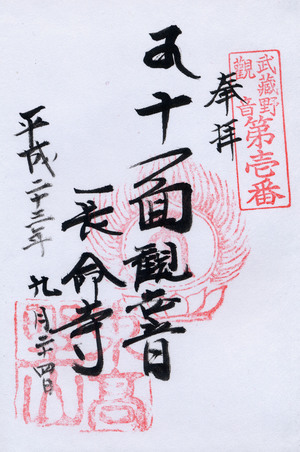 武蔵野
觀音
第壱番
奉拝
十一面觀音
長命寺
平成二十三年
九月二十四日
東高
野山